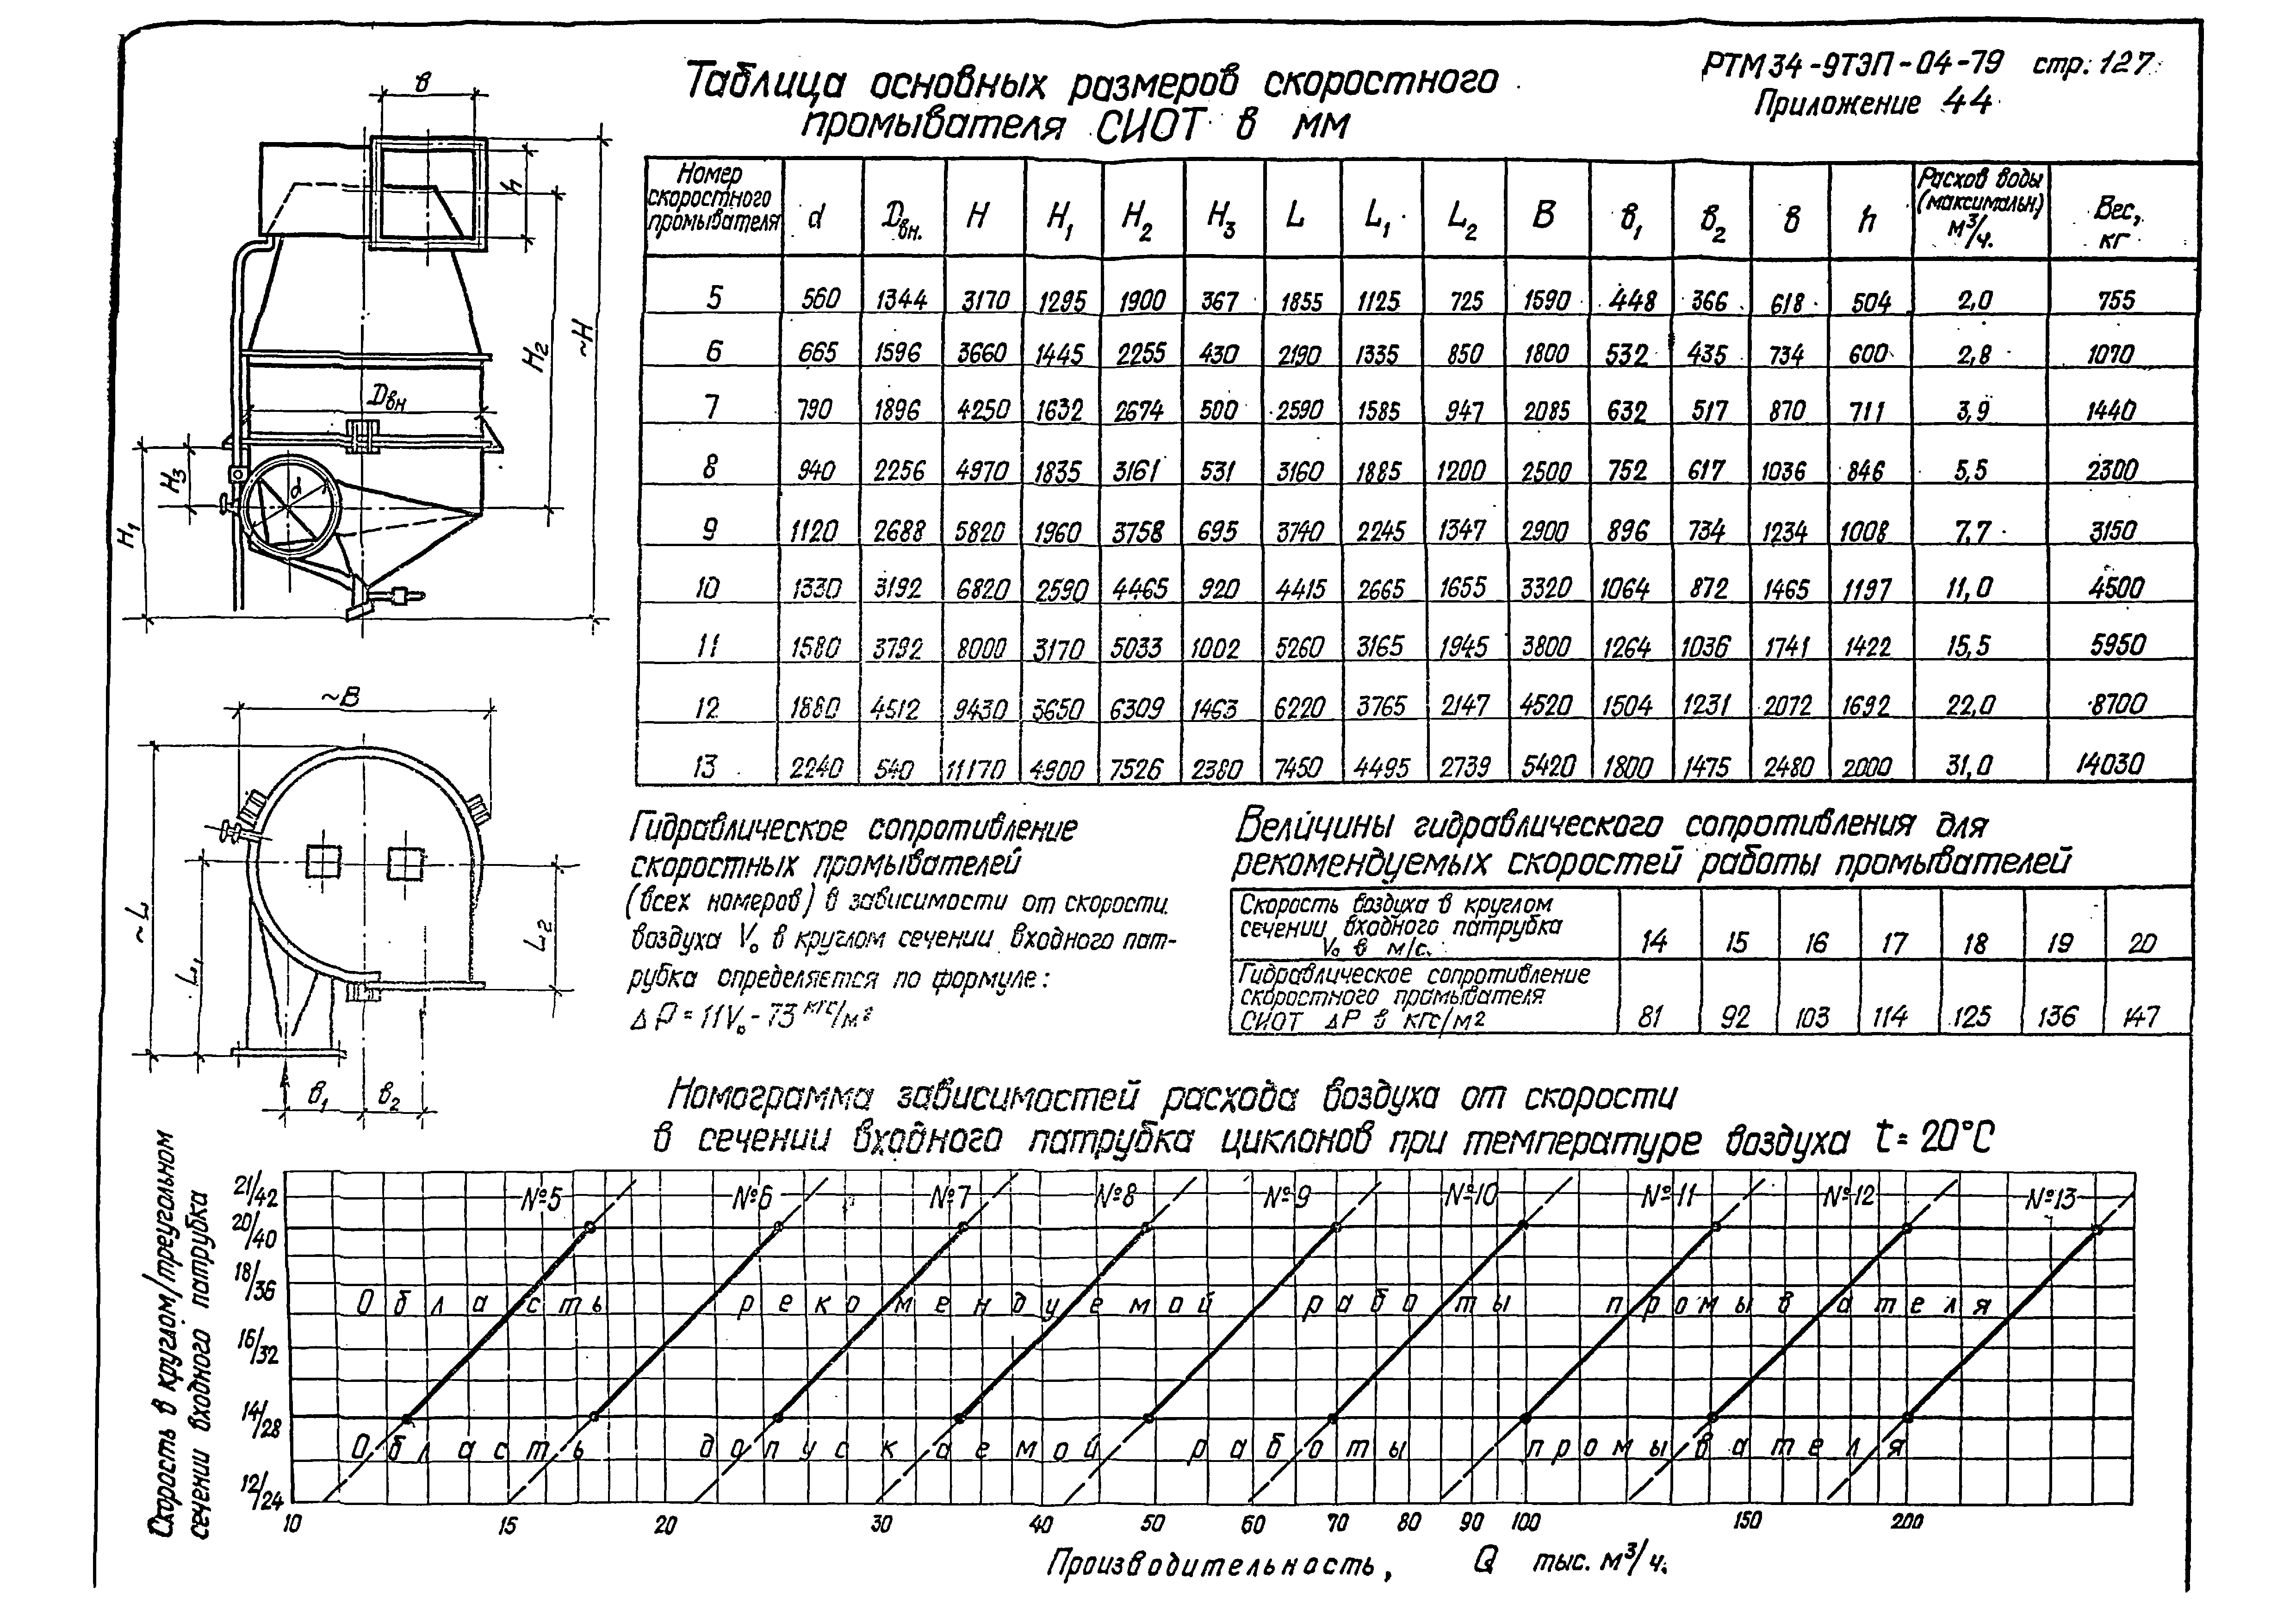 РТМ 34-9ТЭП-04-79 стр. 127
Приложение 44
Таблица основных размеров скоростного
промывателя СИОТ в мм
Номер скоростного промывателя d Dвн. H H1 H2 H3 L L1 L2 B в1 в2 в h Расход воды (максимальн.) м³/ч. Вес, кг
5 560 1344 3170 1295 1900 367 1855 1125 725 1590 448 366 618 504 2,0 755
6 665 1596 3660 1445 2255 430 2190 1335 850 1800 532 435 734 600 2,8 1070
7 790 1896 4250 1632 2674 500 2590 1585 947 2085 632 517 870 711 3,9 1440
8 940 2256 4970 1835 3161 531 3160 1885 1200 2500 752 617 1036 846 5,5 2300
9 1120 2688 5820 1960 3758 695 3740 2245 1347 2900 896 734 1234 1008 7,7 3150
10 1330 3192 6820 2590 4465 920 4415 2665 1655 3320 1064 872 1465 1197 11,0 4500
11 1580 3792 8000 3170 5033 1002 5260 3165 1945 3800 1264 1036 1741 1422 15,5 5950
12 1880 4512 9430 3650 6309 1463 6220 3765 2147 4520 1504 1231 2072 1692 22,0 8700
13 2240 540 11170 4900 7526 2380 7450 4495 2739 5420 1800 1475 2480 2000 31,0 14030
в
h
H2
~H
Dвн
H3
d
H1
~B
~L
L1
L2
в1 в2
Гидравлическое сопротивление
скоростных промывателей
(всех номеров) в зависимости от скорости
воздуха V₀ в круглом сечении входного пат-
рубка определяется по формуле:
ΔP = 11V₀ - 73 кгс/м²
Величины гидравлического сопротивления для
рекомендуемых скоростей работы промывателей
Скорость воздуха в круглом
сечении входного патрубка
V₀ в м/с. 14 15 16 17 18 19 20
Гидравлическое сопротивление
скоростного промывателя
СИОТ ΔP в кгс/м2 81 92 103 114 125 136 147
Номограмма зависимостей расхода воздуха от скорости
в сечении входного патрубка циклонов при температуре воздуха t = 20°C
Скорость в круглом/треугольном
сечении входного патрубка
21/42
20/40
18/36
16/32
14/28
12/24
№5 №6 №7 №8 №9 №10 №11 №12 №13
Область рекомендуемой работы промывателя
Область допускаемой работы промывателя
10 15 20 30 40 50 60 70 80 90 100 150 200
Производительность, Q тыс. м³/ч.